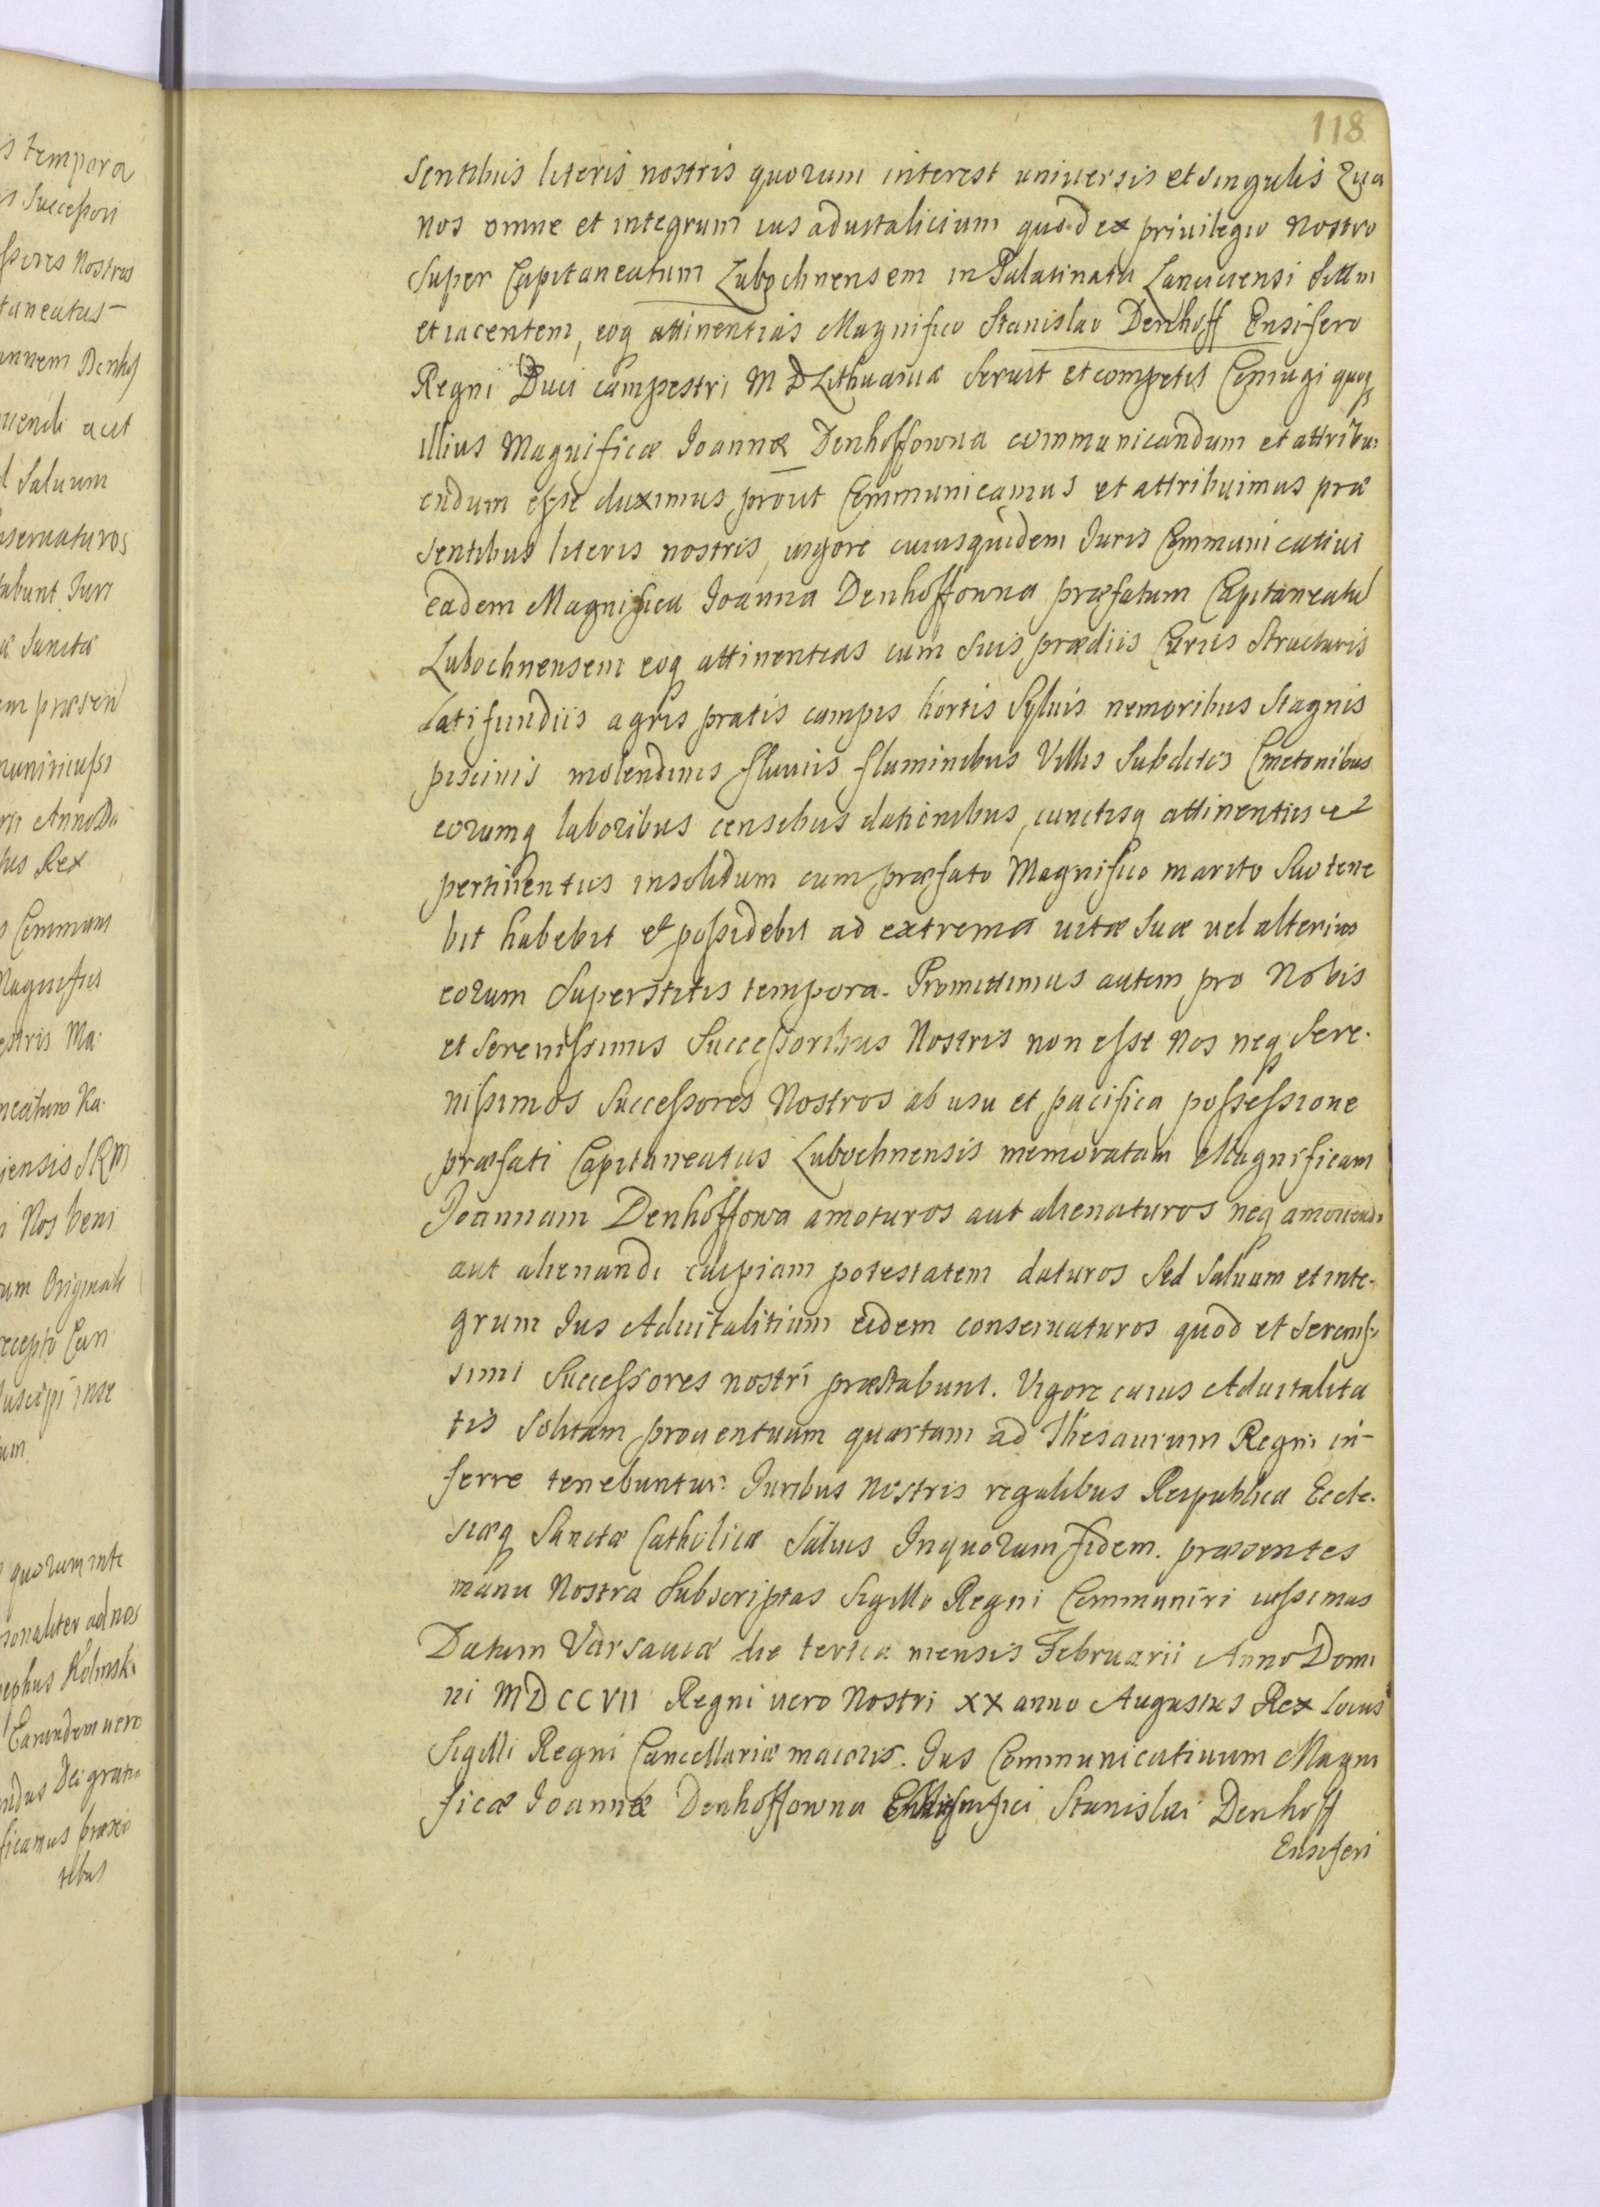 118
sentibus literis nostris quorum interest universis et singulis Qua
nos omne et integrum ius advitalicium quod ex privilegio Nostro
super Capitaneatum Lubochnensem in Palatinatu Lanciciensi situm
et iacentem, eoq attinentias Magnifico Stanislao Denhoff Ensifero
Regni Duci campestri M D Lithuaniæ servit et competit Coniugi quoq
illius Magnificæ Joannæ Denhoffowna communicandum et attribu:
endum esse duximus prout Communicamus et attribuimus præ
sentibus literis nostris, vigore cuiusquidem Juris Communicativi
eadem Magnifica Joanna Denhoffowna præfatum Capitaneatu
Lubochnensem eoq attinentias cum suis prædiis Curiis structuris
Latifundiis agris pratis campis hortis sylvis nemoribus stagnis
piscinis molendinis fluviis fluminibus Villis subditis Cmetonibus
eorumq laboribus censibus dationibus, cunctisq attinentiis et
pertinentiis insolidum cum præfato Magnifico marito suo tene
bit habebit et possidebit ad extrema vitæ suæ vel alterius
eorum superstitis tempora. Promittimus autem pro Nobis
et serenissimis Successoribus Nostris non esse Nos neq sere.
nissimos successores Nostros ab usu et pacifica possessione
præfati Capitaneatus Lubochnensis memoratam Magnificam
Joannam Denhoffowa amoturos aut alienaturos neq amovendi
aut alienandi cuipiam potestatem daturos sed salvum et inte-
grum Jus Advitalitium eidem conservaturos quod et serenis-
simi Successores nostri præstabunt. Vigore cuius Advitalita
tis solitam proventuum quartam ad Thesaurum Regni in-
ferre tenebuntur: Juribus Nostris regalibus Reipublica Eccle.
siæq Sanctæ Catholicæ salvis In quorum fidem. præsentes
manu Nostra subscriptas sigillo Regni Communiri iussimus
Datum Varsaviæ die tertia mensis Februarii Anno Domi
ni MDCCVII Regni vero Nostri XX anno Augustus Rex Locus
Sigilli Regni Cancellariæ maioris. Jus Communicativum Magni
ficæ Joannæ Denhoffowna Magnifici Stanislai Denhoff
Ensiferi